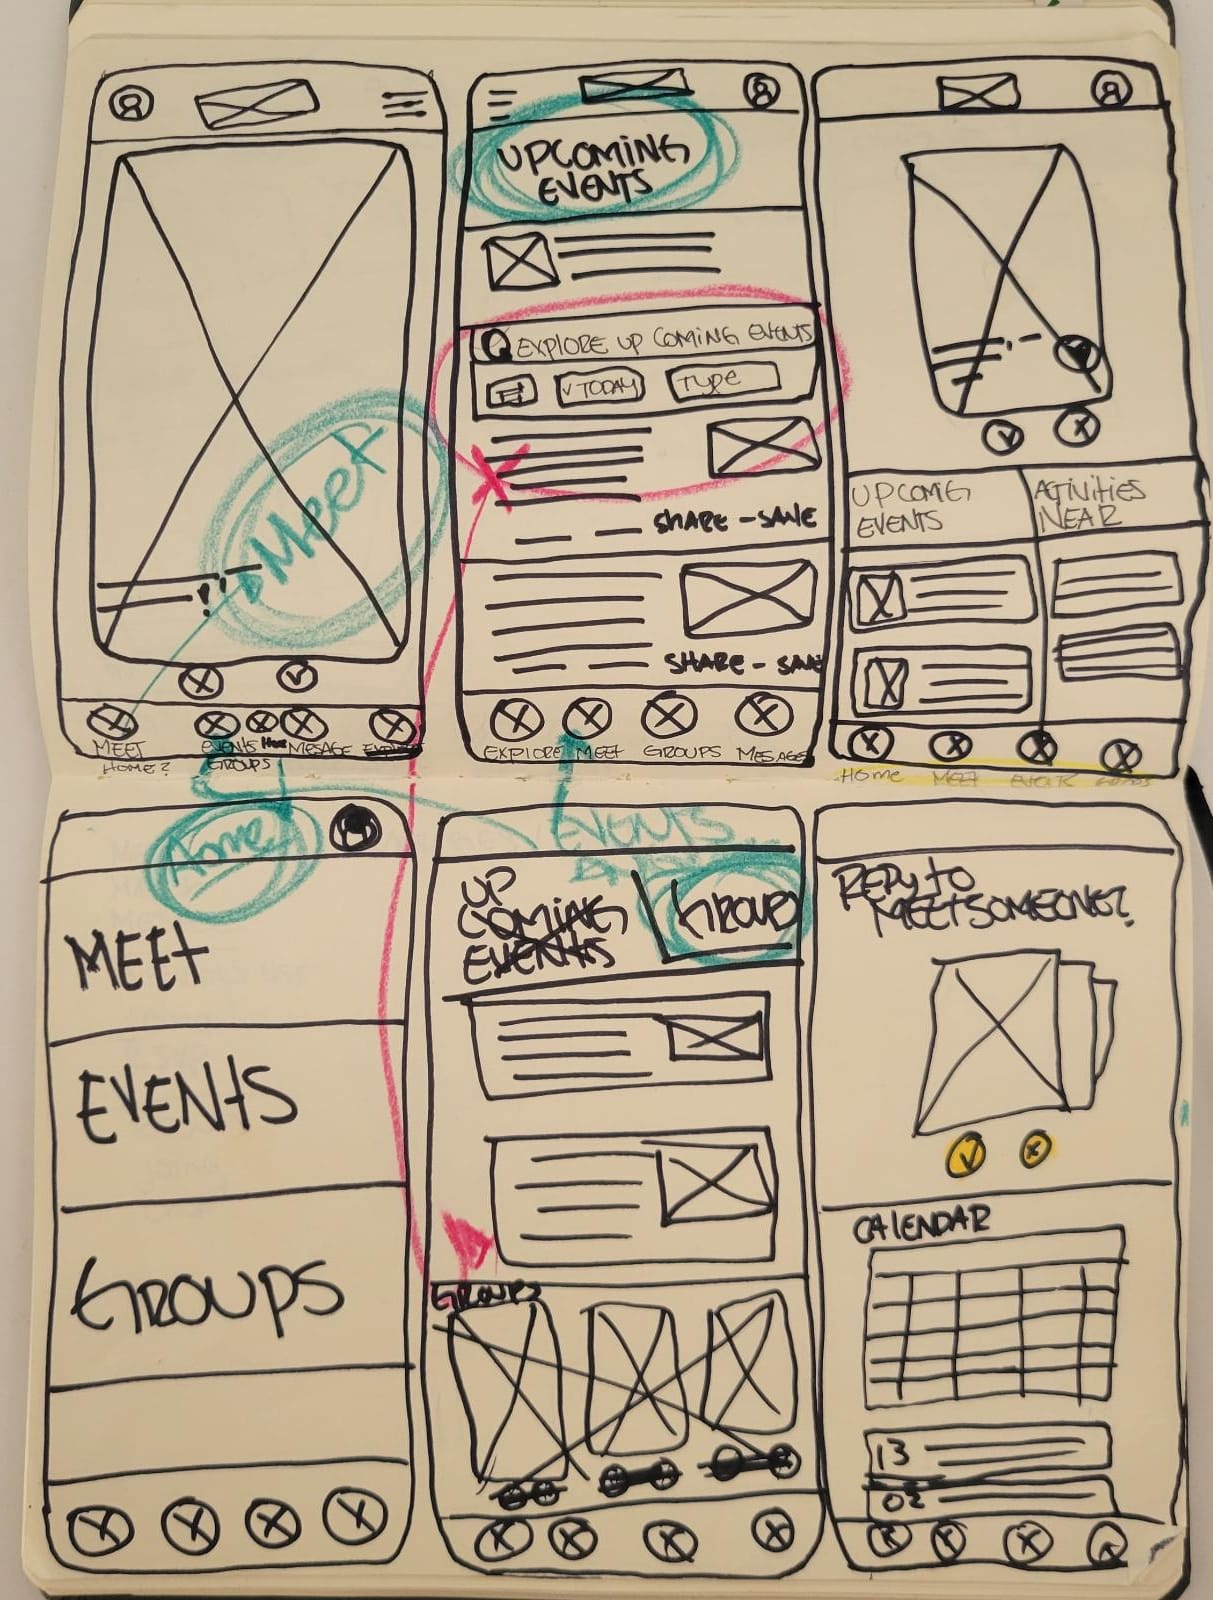 Meet
MEET
EVENTS
MESAGE
HOME?
GROUPS
UPCOMING
EVENTS
EXPLORE UP COMING EVENTS
TODAY
TYPE
SHARE - SAVE
SHARE - SAVE
EXPLORE
MEET
GROUPS
MESAGE
UPCOMIG
EVENTS
ACTIVITIES
NEAR
Home
MEET
EVENTS
MEET
EVENTS
GROUPS
EVENTS...
UP
COMING
EVENTS
GROUP
GROUPS
MEET SOMEONE?
CALENDAR
13
02